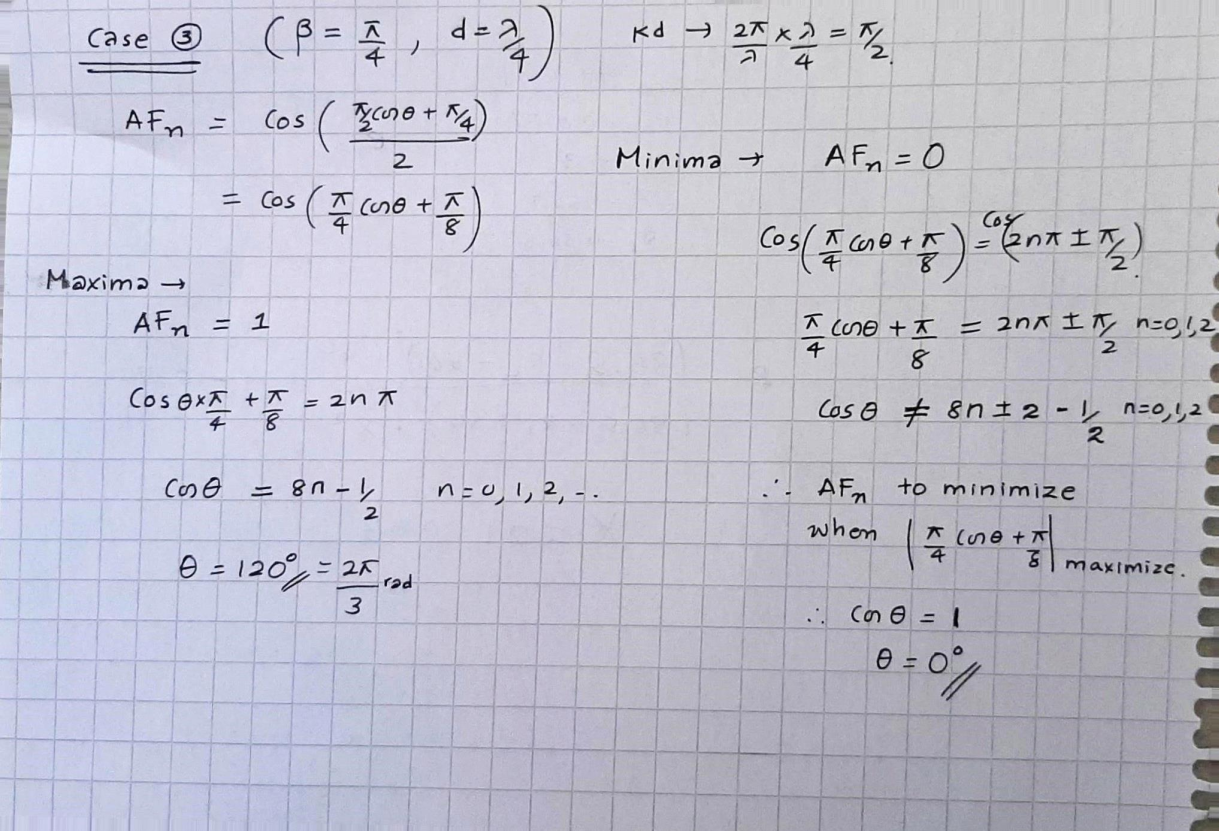 Case ③ (β = π/4, d = λ/4) Kd → 2π/λ × λ/4 = π/2.
AFn = Cos((π/2 cosθ + π/4)/2)
= Cos(π/4 cosθ + π/8)
Maxima →
AFn = 1
Cosθ×π/4 + π/8 = 2nπ
Cosθ = 8n - 1/2 n=0, 1, 2, -..
θ = 120° // = 2π/3 rad
Minima → AFn = 0
Cos(π/4 cosθ + π/8) = Cos(2nπ ± π/2).
π/4 cosθ + π/8 = 2nπ ± π/2 n=0,1,2
Cosθ ≠ 8n ± 2 - 1/2 n=0,1,2
∴ AFn to minimize
when |π/4 cosθ + π/8| maximize.
∴ Cosθ = 1
θ = 0° //